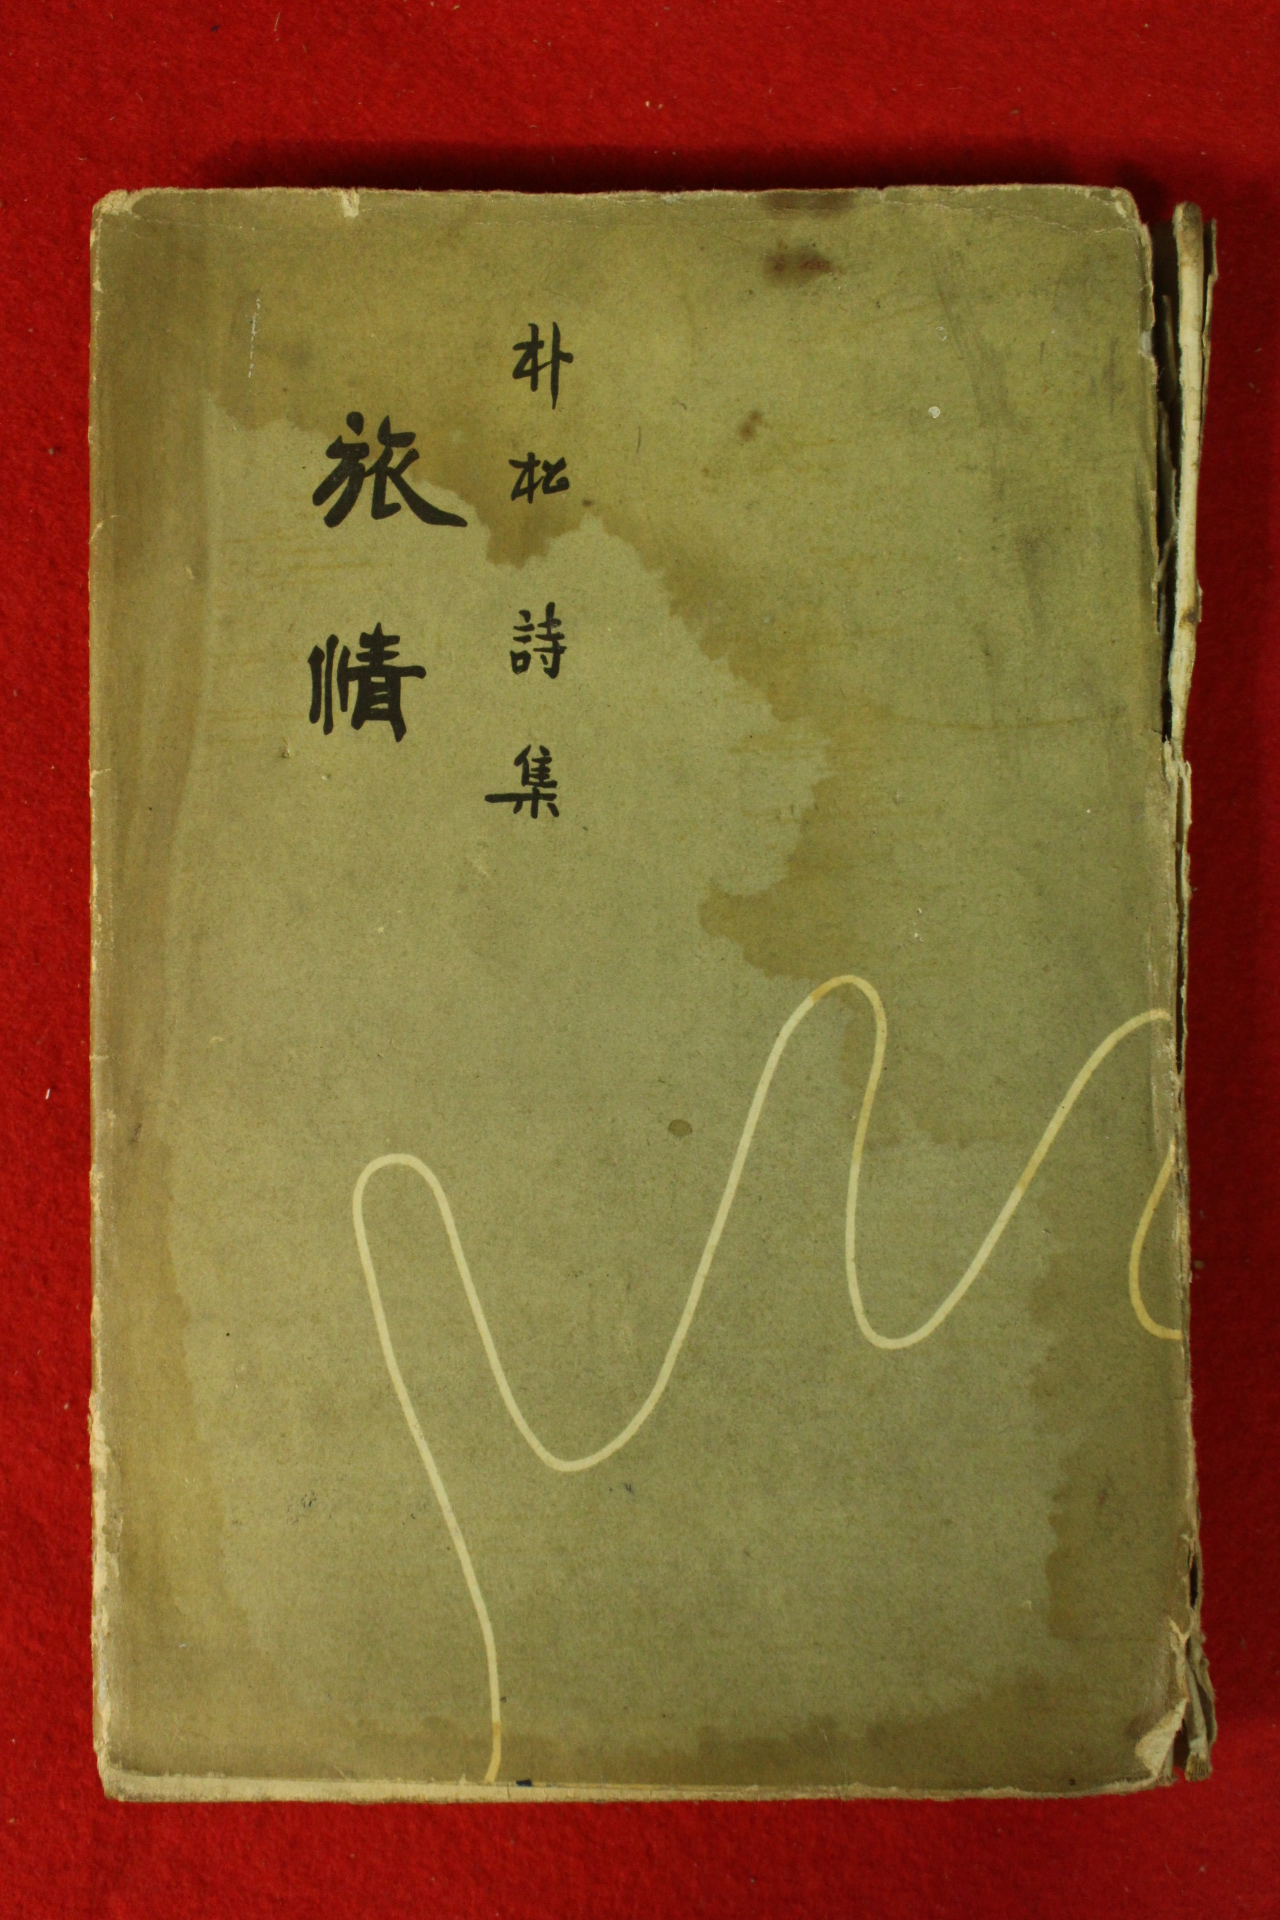 朴松詩集
旅情